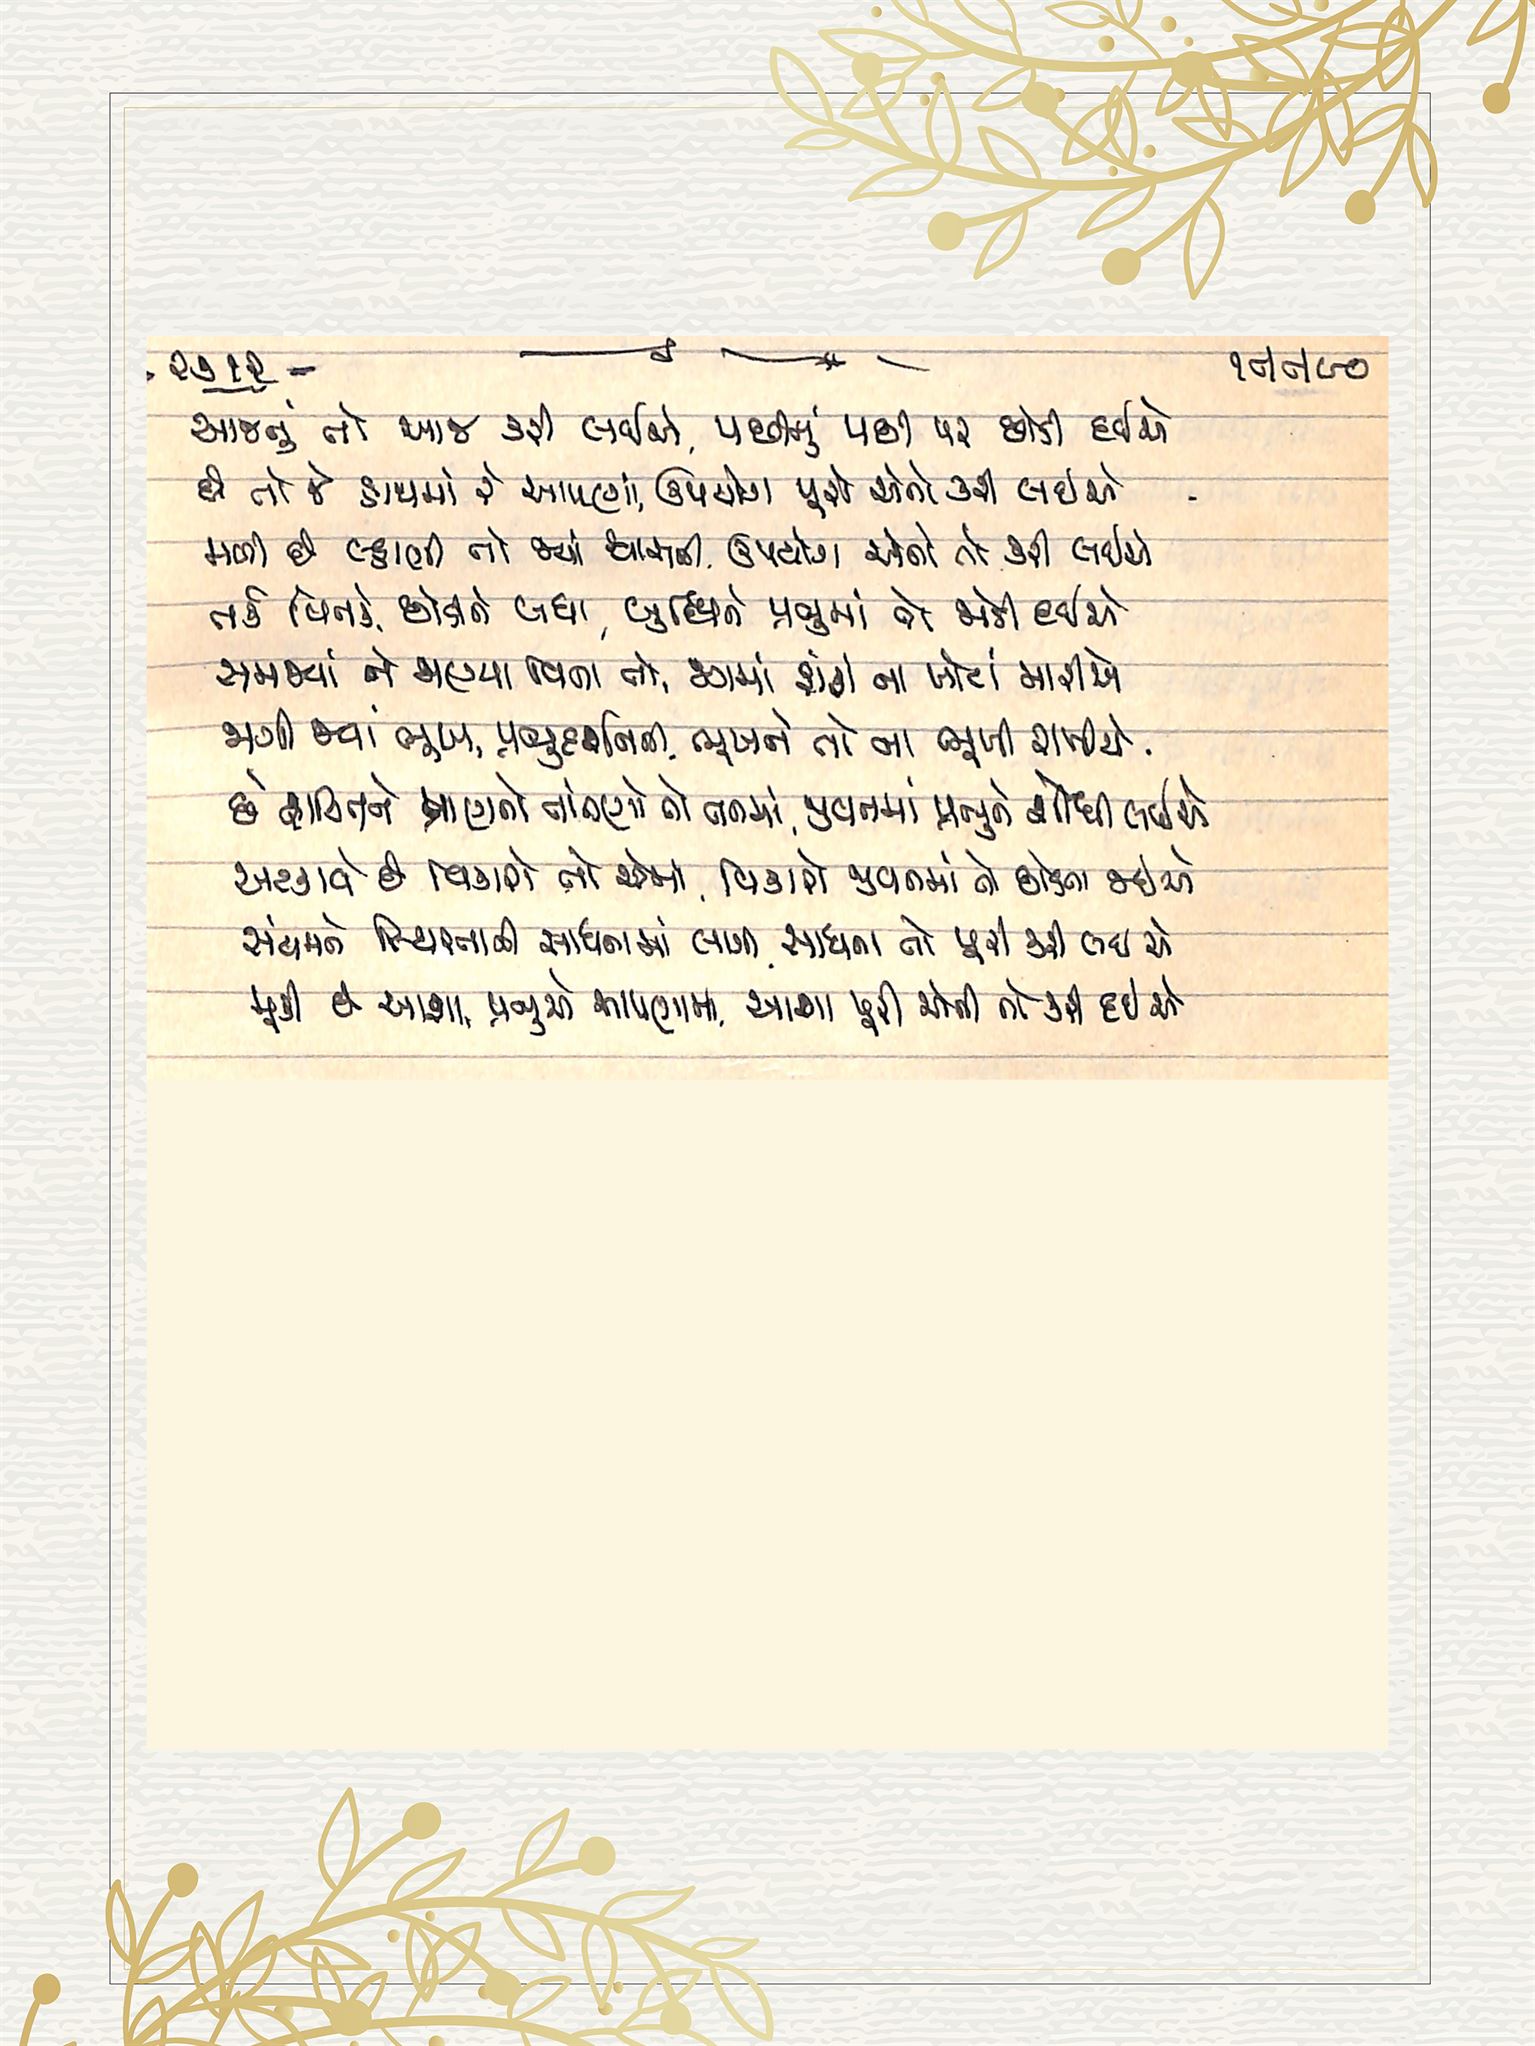 ૨૭૧૨ -
આજનું તો આજ કરી લઈએ, પછીનું પછી પર છોડી દઈએ
છે તો જે હાથમાં રે આપણાં, ઉપયોગ પૂરો એનો કરી લઇએ
મળી છે લ્હાણી તો જ્યાં શ્વાસની, ઉપયોગ એનો તો કરી લઈએ
તર્ક વિતર્ક, છોડીને બધા, બુદ્ધિને પ્રભુમાં જોડી દઈએ
સમજ્યાં ને જાણ્યા વિના તો, શંકા ના ખોટાં મારીએ
જાગી જ્યાં ભૂખ, પ્રભુદર્શનની, ભૂખને તો ના ભૂલી જઈએ.
છે પ્રાણનો તાંતણો તો તનમાં, જીવનમાં પ્રભુને શોધી લઈએ
અટકાવે છે વિકારો તો એમાં, વિકારો જીવનમાં તો છોડતા જઇએ
સંયમને સ્થિરતાની સાધનામાં લાગી, સાધના તો પૂરી કરી લઇએ
મૂકી છે આશા, પ્રભુએ આપણામાં, આશા પૂરી એની તો કરી દઇએ